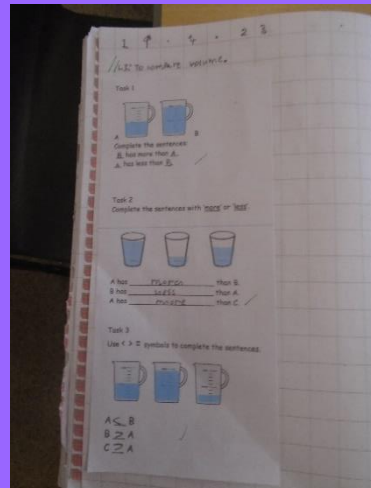 L.I: To compare volume.
Task 1
A B
Complete the sentences:
B has more than A
A has less than B
Task 2
Complete the sentences with 'more' or 'less'.
A has than B
B has than A
A has than C
Task 3
Use < > = symbols to complete the sentences.
A < B
B > A
C > A